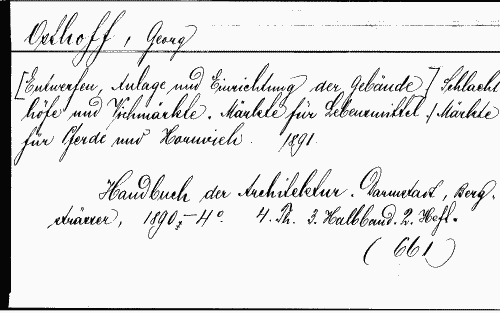 Osthoff, Georg
[Entwerfen, Anlage und Einrichtung der Gebäude] Schlacht
höfe und Viehmärkte. Märkte für Lebensmittel :/ Märkte
für Pferde und Hornvieh. 1891.
Handbuch der Architektur. Darmstadt, Berg.
strässer, 1890,- 4°. 4. Th. 3. Halbband. 2. Heft.
(661)